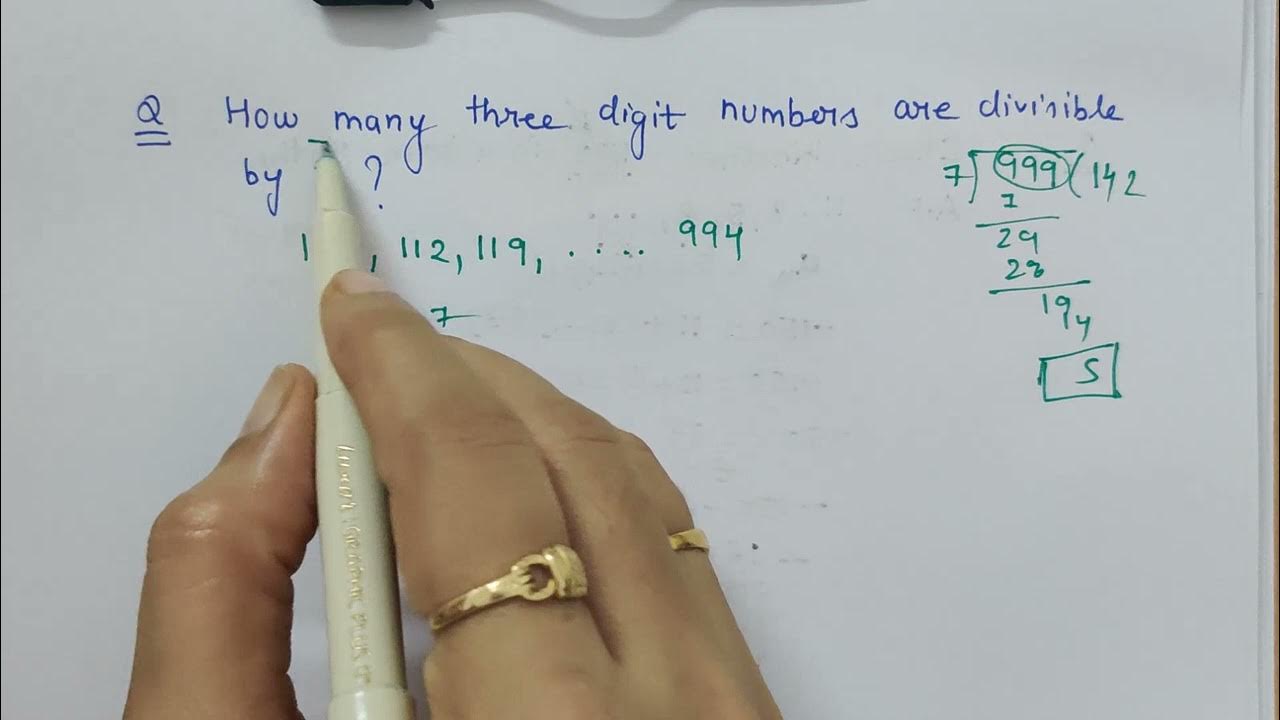 Q How many three digit numbers are divisible
by ?
7)999(142
7
29
28
19
4
5
1 , 112, 119, ..... 994
7